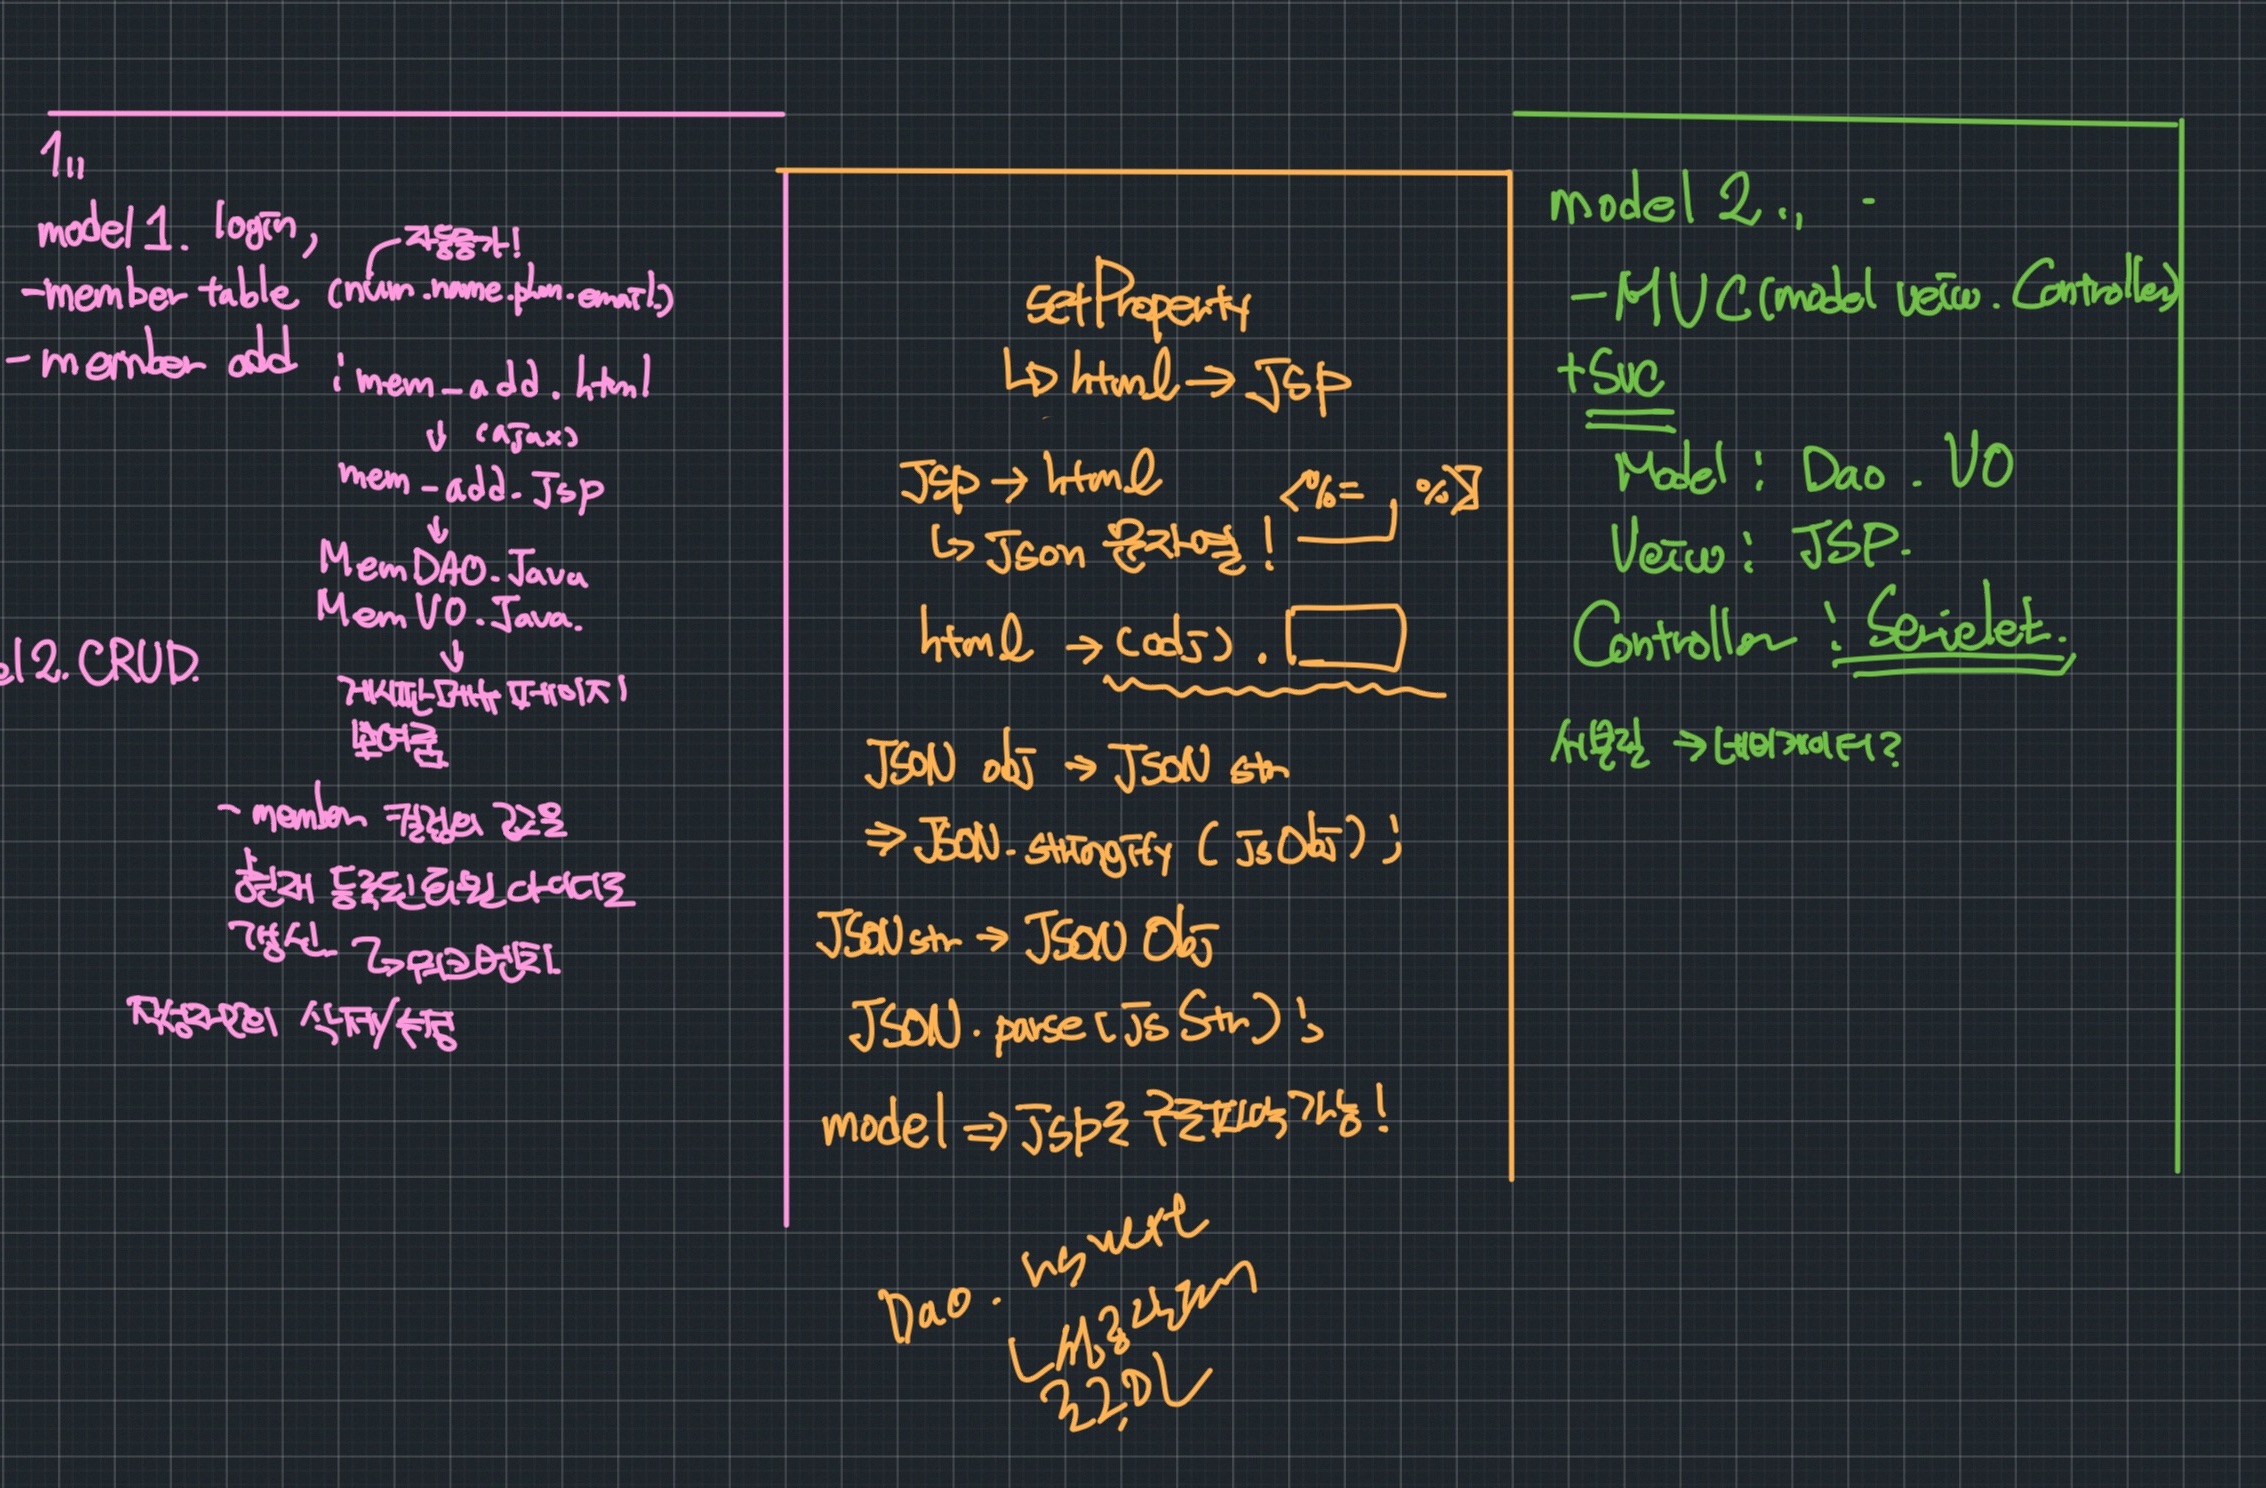 1,,
model 1. login,
자동증가!
-member table (num.name.phon.email.)
- member add : mem_add.html
↓ (ajax)
mem_add.Jsp
↓
MemDAO.Java
MemVO.Java.
↓
el2. CRUD.
게시판메뉴 페이지
보여줌
- member 컬럼의 값을
현재 등록된 회원 아이디로
갱신
작성자만이 삭제/수정
setProperty
↳ html → Jsp
Jsp → html <%= , %>
↳ Json 문자열!
html → (obj).
JSON obj → JSON str
⇒ JSON.stringify (jsObj) ;
JSON str → JSON Obj
JSON.parse(jsStr);
model ⇒ jsp로
가능!
Dao.
model 2.,, -
-MVC(model veiw. Controller)
+Svc
Model : Dao . VO
Veiw : JSP.
Controller : Serielet.
서블릿 → 네비게이터?